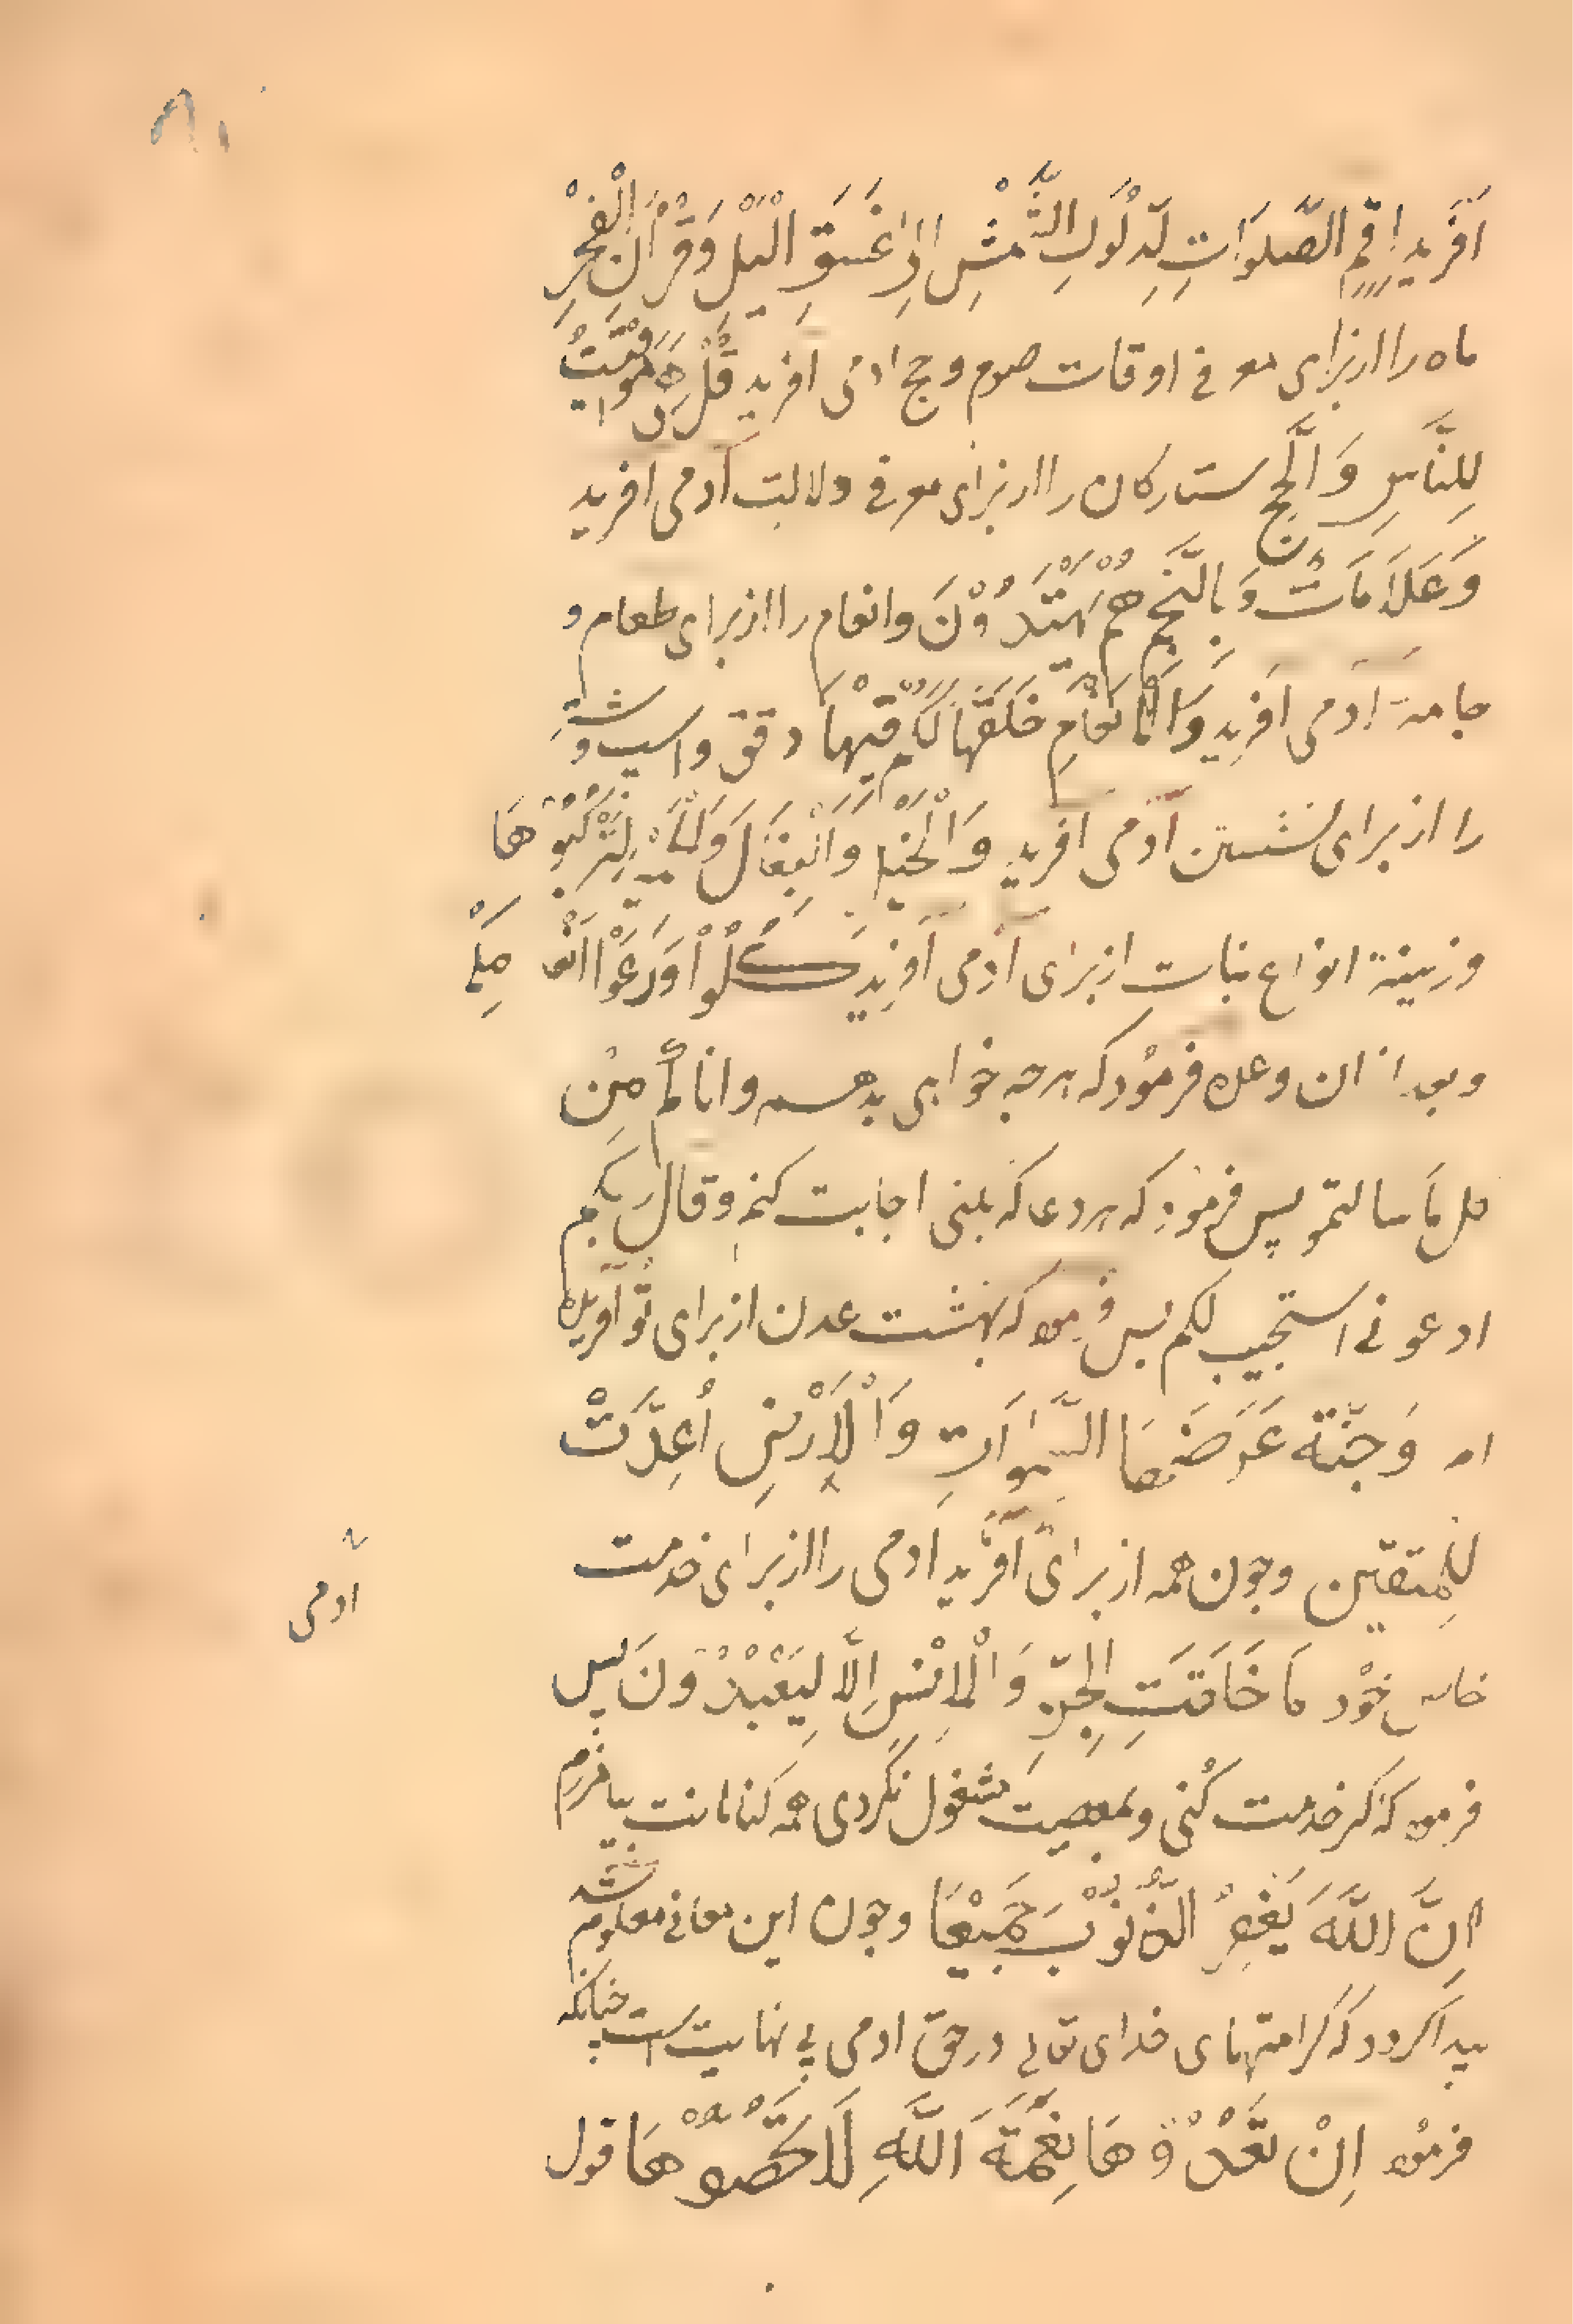 ۸۱
اَفَرید اِقِمِ الصَّلوَاتِ لِدُلُوكِ الشَّمْسِ اِلىٰ غَسَقِ الْیَلِ وَقُرْآنَ الْفَجْرِ
ماه را از برای معرفی اوقات صوم و حج ادمی افرید قُلْ هِیَ مَوَاقِیْتُ
لِلنَّاسِ وَالْحَجِّ ستارکان را از برای معرفی و دلالت آدمی افرید
وَعَلَامَاتٌ وَبِالنَّجْمِ هُمْ یَهْتَدُوْنَ وانعام را از برای طعام و
جامهٔ ادمی اَفرید وَالْاَنْعَامِ خَلَقَهَا لَكُمْ فِیْهَا دفؤ واسب و شتر
را از برای نشستن آدمی افرید وَالْخَیْلَ وَالْبِغَالَ وَالْحَمِیْرَ لِتَرْكَبُوْهَا
وزینة انواع نبات از برای آدمی آفرید كُلُوْا وَارْعَوْا اَنْعَامَكُمْ
وبعد از ان وعده فرمود که هرجه خواهی بدهم واتاكُمْ مِنْ
كل مَا سالتمو پس فرمود که هر دعا که بکنی اجابت کنم وقال ربكم
ادعونی استجیب لكم پس فرموده که بهشت عدن از برای تو آفریده
ام وَجَنَّة عَرَضُهَا السَّمٰوَاتِ وَالْاَرْضِ اُعِدَّتْ
لِلْمتقین وجون همه از برای آفرید ادمی را از برای خدمت
ادمی
خاص خود مَا خَلَقتَ الْجِنّ وَالْاِنْسِ اِلَّا لِیَعْبُدُوْنَ پس
فرموده که کر خدمت کنی وبمعصیت مشغول نکردی همه کناهانت بیامرزم
اِنَّ اللَّهَ یَغْفِرُ الذُّنُوْبَ جَمِیْعًا وجون این معانی معلوم شد
بیدا کردد که کرامتهای خدای تعالی در حق ادمی بی نهایت است جنانکه
فرموده اِنْ تَعُدُّوْهَا نِعْمَةَ اللَّهِ لَا تُحْصُوْهَا قول